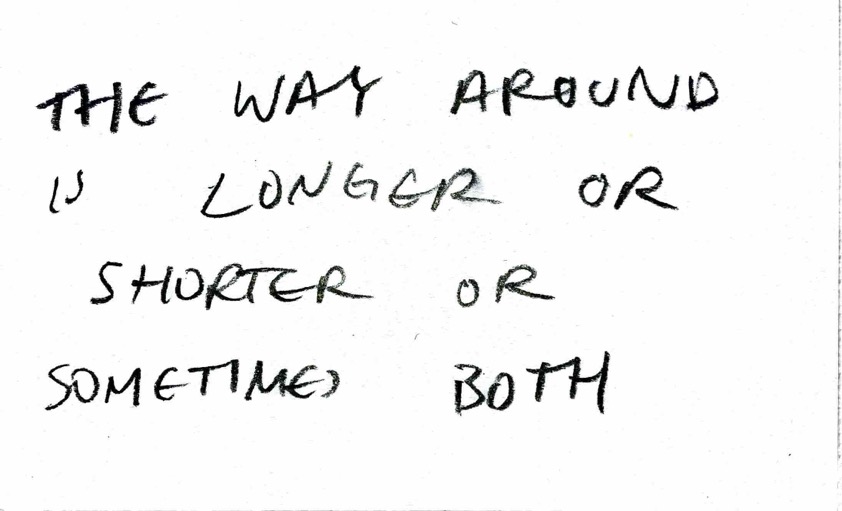 THE WAY AROUND
IS LONGER OR
SHORTER OR
SOMETIMES BOTH